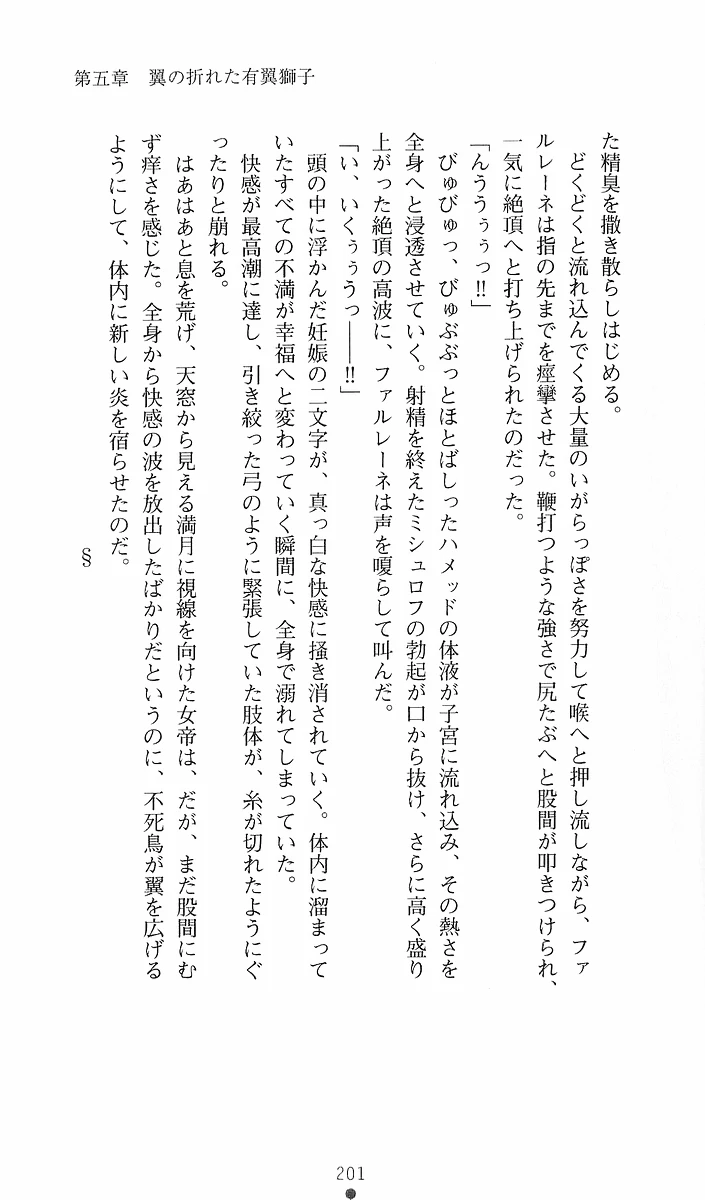 第五章　翼の折れた有翼獅子
た精臭を撒き散らしはじめる。
　どくどくと流れ込んでくる大量のいがらっぽさを努力して喉へと押し流しながら、ファ
ルレーネは指の先までを痙攣させた。鞭打つような強さで尻たぶへと股間が叩きつけられ、
一気に絶頂へと打ち上げられたのだった。
「んううぅぅっ‼」
　びゅびゅっ、びゅぶぶっとほとばしったハメッドの体液が子宮に流れ込み、その熱さを
全身へと浸透させていく。射精を終えたミシュロフの勃起が口から抜け、さらに高く盛り
上がった絶頂の高波に、ファルレーネは声を嗄らして叫んだ。
「い、いくぅぅうっ――‼」
　頭の中に浮かんだ妊娠の二文字が、真っ白な快感に掻き消されていく。体内に溜まって
いたすべての不満が幸福へと変わっていく瞬間に、全身で溺れてしまっていた。
　快感が最高潮に達し、引き絞った弓のように緊張していた肢体が、糸が切れたようにぐ
ったりと崩れる。
　はあはあと息を荒げ、天窓から見える満月に視線を向けた女帝は、だが、まだ股間にむ
ず痒さを感じた。全身から快感の波を放出したばかりだというのに、不死鳥が翼を広げる
ようにして、体内に新しい炎を宿らせたのだ。
§
201